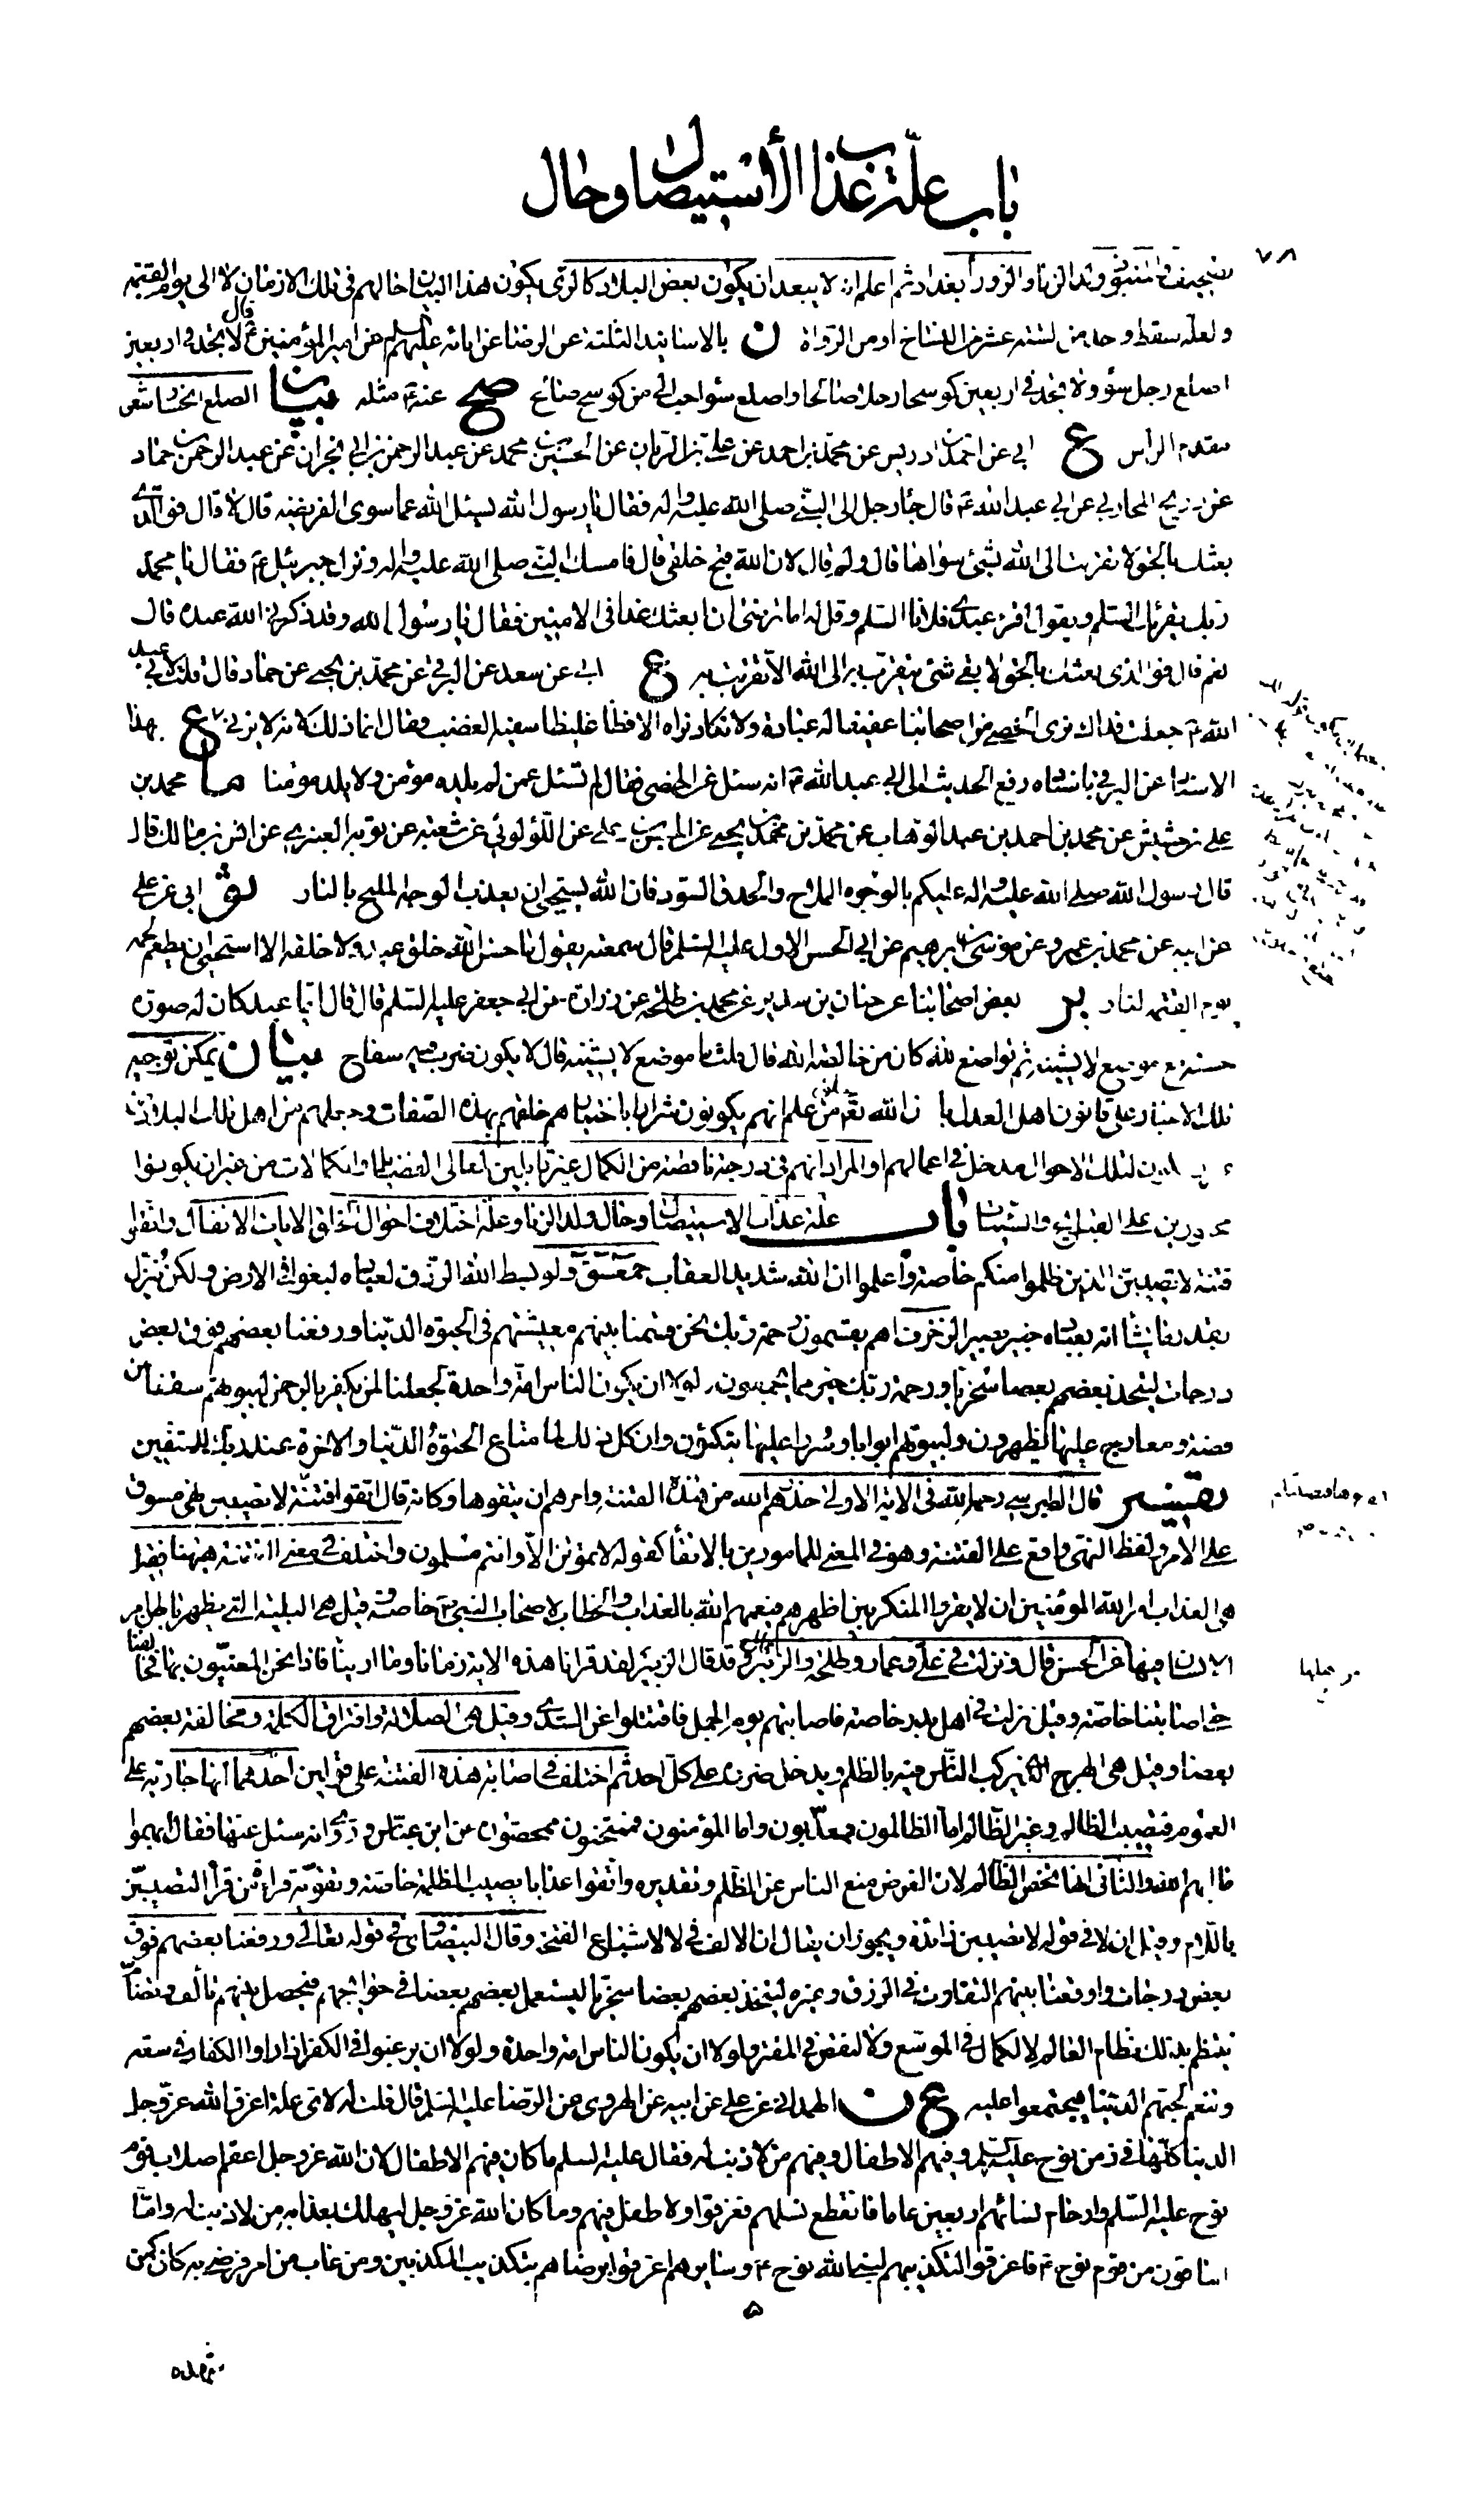 باب علة عذاب الاستیصال وحال
٧٨
وولد الزنا والزوراء بغداد ثم اعلم انه لا یبعد ان یکون بعض البلاد کالری یکون هذا البیان حالهم فی تلک الازمان لا الی یوم القیمة
ولعله سقط واحد من لستة عشر من النساخ او من الرواة ن بالاسانید الثلثة عن الرضا عن ابائه علیهم السلم عن امیر المؤمنین ع قال لا تجد فی اربعین
اصلع رجل سوء ولا تجد فی اربعین کوسجا رجلا صالحا واصلع سوء احب الی من کوسج صالح صح عنه ع مثله بیان الصلع انحسار شعر
مقدم الرأس ع ابی عن احمد بن ادریس عن محمد بن احمد عن علی بن الریان عن الحسین بن محمد عن عبد الرحمن بن ابی نجران عن عبد الرحمن بن حماد
عن ذریح المحاربی عن ابی عبد الله ع قال جاء رجل الی النبی صلی الله علیه واله فقال یا رسول الله یسئل الله عما سوی الفریضة قال لا قال فو الذی
بعثک بالحق لا تقربت الی الله بشئ سواها قال ولم قال لان الله قبح خلقی قال فامسک النبی صلی الله علیه واله ونزل جبرئیل ع فقال یا محمد
ربک یقرئک السلم ویقول اقرء عبدی فلانا السلم وقل له اما ترضی ان ابعثک غدا فی الامنین فقال یا رسول الله وقد ذکرنی الله عنده قال
نعم قال فو الذی بعثک بالحق لا بقی شئ یتقرب به الی الله الا تقربت به ع ابی عن سعد عن البرقی عن محمد بن یحیی عن حماد قال قلت لابی عبد
الله ع جعلت فداک نری الخصی من اصحابنا عفیفا له عبادة ولا نکاد نراه الا فظا غلیظا سفیه الغضب فقال انما ذلک لانه لا یزنی ع بهذا
الاسناد عن البرقی باسناده رفع الحدیث الی ابی عبد الله ع انه سئل عن الخصی فقال لم تسئل عمن لم یلده مؤمن ولا یلد مؤمنا ما محمد بن
علی بن خشیش عن محمد بن احمد بن عبد الوهاب عن محمد بن محمد بن یحیی عن عن اللؤلوئی عن شعبة عن توبة العنبری عن انس بن مالک قال
قال رسول الله صلی الله علیه واله علیکم بالوجوه الملاح والحدق السود فان الله یستحیی ان یعذب الوجه الملیح بالنار ثو ابی عن علی
عن ابیه عن محمد بن عمرو عن موسی بن ابرهیم عن ابی الحسن الاول علیه السلم قال سمعته یقول ما حسن الله خلق عبد ولا خلقه الا استحیی ان یطعم لحمه
یوم القیمة النار بعض اصحابنا عن حنان بن سدیر عن محمد بن طلحة عن زرارة عن ابی جعفر علیه السلم قال قال ایما عبد کان له صورة
حسنة مع موضع لا یشینه ثم تواضع لله کان من خالصة الله قال قلت ما موضع لا یشینه قال لا یکون ضرب فیه سفاح بیان یمکن توجیه
تلک الاخبار علی قانون اهل العدل بان الله تع من علم انهم یکونون شرارا باختیارهم خلقهم بهذه الصفات وجعلهم من اهل تلک البلاد
لتلک الاحوال مدخل فی اعمالهم او المراد انهم فی درجة ناقصة من الکمال غیر قابلین لمعالی الفضایل والکمالات من غیر ان یکونوا
مجبورین علی القبایح والسیئات باب علة عذاب الاستیصال وحال ولد الزنا وعلة اختلاف احوال الخلق الایات الانفال واتقوا
فتنة لا تصیبن الذین ظلموا منکم خاصة واعلموا ان الله شدید العقاب حمعسق ولو بسط الله الرزق لعباده لبغوا فی الارض ولکن ینزل
بقدر ما یشاء انه بعباده خبیر بصیر الزخرف اهم یقسمون رحمة ربک نحن قسمنا بینهم معیشتهم فی الحیوة الدنیا ورفعنا بعضهم فوق بعض
درجات لیتخذ بعضهم بعضا سخریا ورحمة ربک خیر مما یجمعون ولولا ان یکون الناس امة واحدة لجعلنا لمن یکفر بالرحمن لبیوتهم سقفا من
فضة ومعارج علیها یظهرون ولبیوتهم ابوابا وسررا علیها یتکئون وان کل ذلک لما متاع الحیوة الدنیا والاخرة عند ربک للمتقین
تفسیر قال الطبرسی رحمه الله فی الایة الاولی حذرهم الله من هذه الفتنة وامرهم ان یتقوها وکانه قال اتقوا فتنة لا تصیبن فهی مسوق
علی الامر ولفظ النهی واقع علی الفتنة وهو فی المعنی للمامورین بالاتقاء کقوله لا تموتن الا وانتم مسلمون واختلف فی معنی الفتنة ههنا فقیل
هی العذاب امر الله المؤمنین ان لا یقروا المنکر بین اظهرهم فیعمهم الله بالعذاب والخطاب لاصحاب النبی ص خاصة وقیل هی البلیة التی یظهر باطن امر
الانسان فیها عن الحسن قال ونزلت فی علی وعمار وطلحة والزبیر قال وقد قال الزبیر لقد قرانا هذه الایة زمانا وما ارینا فاذا نحن المعنیون بها فخالفنا
حتی اصابتنا خاصة وقیل نزلت فی اهل بدر خاصة فاصابتهم یوم الجمل فاقتتلوا عن السدی وقیل هی الضلالة وافتراق الکلمة ومخالفة بعضهم
بعضا وقیل هی الهرج الذی یرکب الناس فیه بالظلم ویدخل ضرره علی کل احد ثم اختلف فی اصابة هذه الفتنة علی قولین احدهما انها جاریة علی
العموم فتصیب الظالم وغیر الظالم اما الظالمون فمعذبون واما المؤمنون فممتحنون ممحصون عن ابن عباس وروی انه سئل عنها فقال ابهموا
ما ابهم الله والثانی انها تخص الظالم لان الغرض منع الناس عن الظلم وتقدیره واتقوا عذابا یصیب الظلمة خاصة ویقویه قراءة من قرأ لتصیبن
باللام وقیل ان لا فی قوله لا تصیبن زائدة ویجوز ان یقال ان الالف فی لا لاشباع الفتحة وقال البیضاوی فی قوله تعالی ورفعنا بعضهم فوق
بعض درجات واوقعنا بینهم التفاوت فی الرزق وغیره لیتخذ بعضهم بعضا سخریا لیستعمل بعضهم بعضا فی حوائجهم فیحصل بینهم تألف وتضام
ینتظم بذلک نظام العالم لا لکمال فی الموسع ولا لنقص فی المقتر ولولا ان یکون الناس امة واحدة ولولا ان یرغبوا فی الکفر اذا راوا الکفار فی سعة
وتنعم لحبهم الدنیا فیجتمعوا علیه ع ن الهمدانی عن علی عن ابیه عن الهروی عن الرضا علیه السلم قال قلت له لای علة اغرق الله عز وجل
الدنیا کلها فی زمن نوح علیه السلم وفیهم الاطفال وفیهم من لا ذنب له فقال علیه السلم ما کان فیهم الاطفال لان الله عز وجل اعقم اصلاب قوم
نوح علیه السلم وارحام نسائهم اربعین عاما فانقطع نسلهم فغرقوا ولا طفل فیهم وما کان الله عز وجل لیهلک بعذابه من لا ذنب له واما
الباقون من قوم نوح ع فاغرقوا لتکذیبهم لنبی الله نوح ع وسایرهم اغرقوا برضاهم بتکذیب المکذبین ومن غاب من امر فرضی به کان کمن